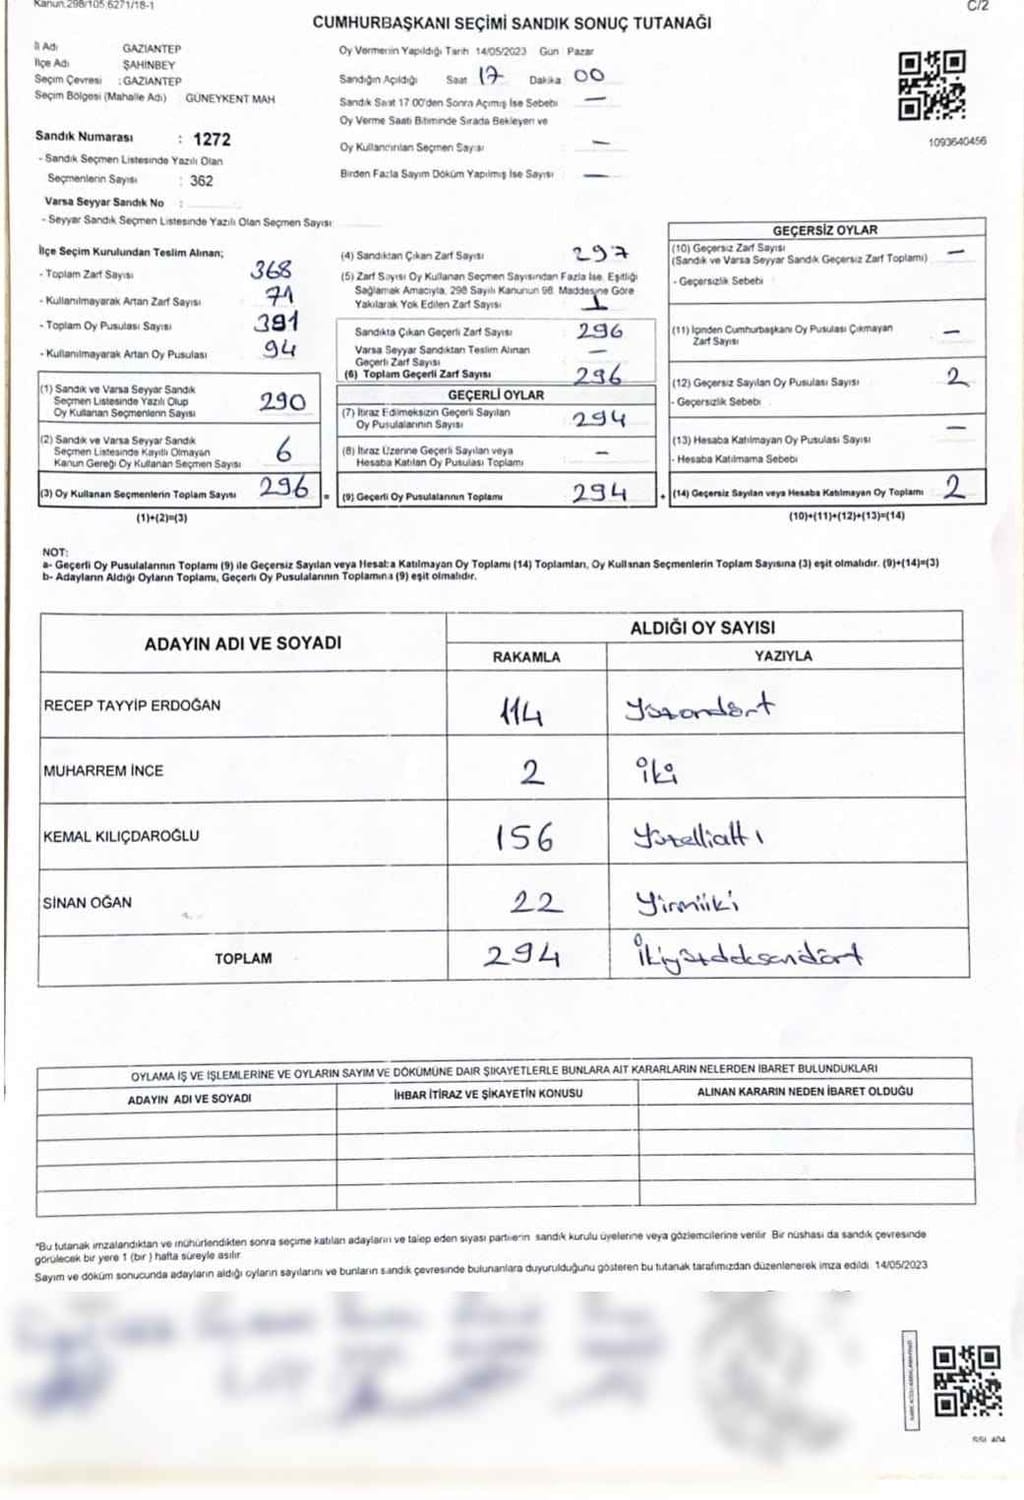 Kanun.298/105.6271/18-1
C/2
CUMHURBAŞKANI SEÇİMİ SANDIK SONUÇ TUTANAĞI
İl Adı GAZİANTEP
İlçe Adı ŞAHİNBEY
Seçim Çevresi : GAZİANTEP
Seçim Bölgesi (Mahalle Adı) GÜNEYKENT MAH
Oy Vermenin Yapıldığı Tarih 14/05/2023 Gün Pazar
Sandığın Açıldığı Saat 17 Dakika 00
Sandık Saat 17 00'den Sonra Açılmış İse Sebebi —
Oy Verme Saati Bitiminde Sırada Bekleyen ve
Oy Kullandırılan Seçmen Sayısı —
Birden Fazla Sayım Döküm Yapılmış İse Sayısı —
1093640456
Sandık Numarası : 1272
- Sandık Seçmen Listesinde Yazılı Olan
Seçmenlerin Sayısı : 362
Varsa Seyyar Sandık No :
- Seyyar Sandık Seçmen Listesinde Yazılı Olan Seçmen Sayısı
İlçe Seçim Kurulundan Teslim Alınan;
- Toplam Zarf Sayısı 368
- Kullanılmayarak Artan Zarf Sayısı 71
- Toplam Oy Pusulası Sayısı 391
- Kullanılmayarak Artan Oy Pusulası 94
(1) Sandık ve Varsa Seyyar Sandık
Seçmen Listesinde Yazılı Olup
Oy Kullanan Seçmenlerin Sayısı 290
(2) Sandık ve Varsa Seyyar Sandık
Seçmen Listesinde Kayıtlı Olmayan
Kanun Gereği Oy Kullanan Seçmen Sayısı 6
(3) Oy Kullanan Seçmenlerin Toplam Sayısı 296 =
(1)+(2)=(3)
(4) Sandıktan Çıkan Zarf Sayısı 297
(5) Zarf Sayısı Oy Kullanan Seçmen Sayısından Fazla İse, Eşitliği
Sağlamak Amacıyla, 298 Sayılı Kanunun 98. Maddesine Göre
Yakılarak Yok Edilen Zarf Sayısı 1
Sandıkta Çıkan Geçerli Zarf Sayısı 296
Varsa Seyyar Sandıktan Teslim Alınan
Geçerli Zarf Sayısı —
(6) Toplam Geçerli Zarf Sayısı 296
GEÇERLİ OYLAR
(7) İtiraz Edilmeksizin Geçerli Sayılan
Oy Pusulalarının Sayısı 294
(8) İtiraz Üzerine Geçerli Sayılan veya
Hesaba Katılan Oy Pusulası Toplamı —
(9) Geçerli Oy Pusulalarının Toplamı 294 +
GEÇERSİZ OYLAR
(10) Geçersiz Zarf Sayısı —
(Sandık ve Varsa Seyyar Sandık Geçersiz Zarf Toplamı)
- Geçersizlik Sebebi
(11) İçinden Cumhurbaşkanı Oy Pusulası Çıkmayan
Zarf Sayısı —
(12) Geçersiz Sayılan Oy Pusulası Sayısı 2
- Geçersizlik Sebebi
(13) Hesaba Katılmayan Oy Pusulası Sayısı —
- Hesaba Katılmama Sebebi
(14) Geçersiz Sayılan veya Hesaba Katılmayan Oy Toplamı 2
(10)+(11)+(12)+(13)=(14)
NOT:
a- Geçerli Oy Pusulalarının Toplamı (9) ile Geçersiz Sayılan veya Hesaba Katılmayan Oy Toplamı (14) Toplamları, Oy Kullanan Seçmenlerin Toplam Sayısına (3) eşit olmalıdır. (9)+(14)=(3)
b- Adayların Aldığı Oyların Toplamı, Geçerli Oy Pusulalarının Toplamına (9) eşit olmalıdır.
ADAYIN ADI VE SOYADI
ALDIĞI OY SAYISI
RAKAMLA YAZIYLA
RECEP TAYYİP ERDOĞAN 114 Yüzondört
MUHARREM İNCE 2 iki
KEMAL KILIÇDAROĞLU 156 Yüzellialtı
SİNAN OĞAN 22 Yirmiiki
TOPLAM 294 İkiyüzdoksandört
OYLAMA İŞ VE İŞLEMLERİNE VE OYLARIN SAYIM VE DÖKÜMÜNE DAİR ŞİKAYETLERLE BUNLARA AİT KARARLARIN NELERDEN İBARET BULUNDUKLARI
ADAYIN ADI VE SOYADI İHBAR İTİRAZ VE ŞİKAYETİN KONUSU ALINAN KARARIN NEDEN İBARET OLDUĞU
*Bu tutanak imzalandıktan ve mühürlendikten sonra seçime katılan adayların ve talep eden siyasi partilerin sandık kurulu üyelerine veya gözlemcilerine verilir Bir nüshası da sandık çevresinde
görülecek bir yere 1 (bir) hafta süreyle asılır
Sayım ve döküm sonucunda adayların aldığı oyların sayılarını ve bunların sandık çevresinde bulunanlara duyurulduğunu gösteren bu tutanak tarafımızdan düzenlenerek imza edildi 14/05/2023